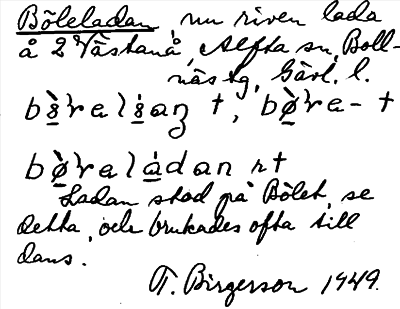 Böleladan, nu riven lada
å 2 Västanå, Alfta sn, Boll-
näs tg, Gävl. l.
†, †
rt
Ladan stod på Bölet, se
detta, och brukades ofta till
dans.
T. Birgerson 1949.